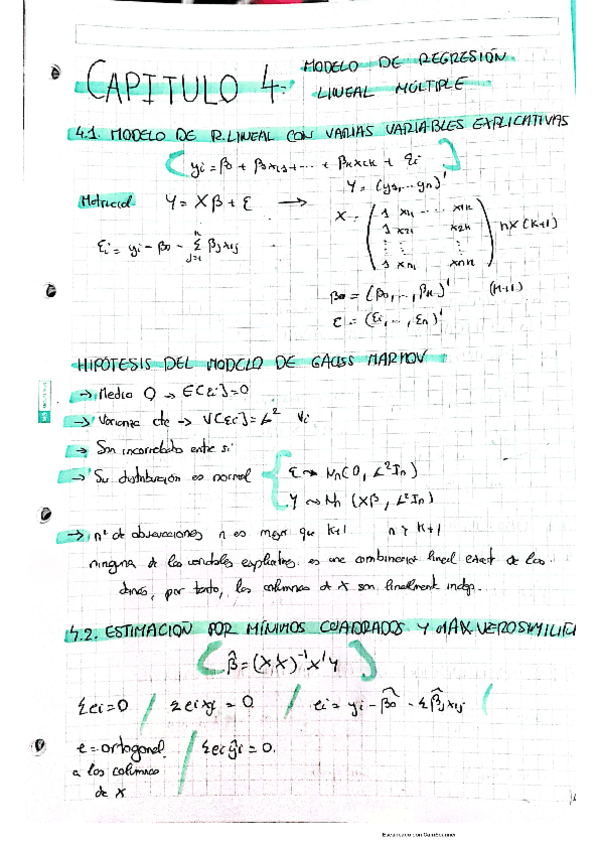 CAPITULO 4.- MODELO DE REGRESIÓN
LINEAL MÚLTIPLE
4.1. MODELO DE R.LINEAL CON VARIAS VARIABLES EXPLICATIVAS
yi = β0 + β1xi1 + ... + βkxik + εi
Matricial Y = Xβ + ε → Y = (y1, ... yn)'
X = ( 1 x11 ... x1k
1 x21 x2k
⋮ ⋮ ⋮
1 xn1 xnk ) nx(k+1)
εi = yi - β0 - Σ βjxij
β = (β0, ..., βk)' (k+1)
ε = (ε1, ..., εn)'
HIPÓTESIS DEL MODELO DE GAUSS MARKOV
→ Media 0 → E[εi]=0
→ Varianza cte → V[εi]=σ² ∀i
→ Son incorrelados entre sí
→ Su distribución es normal { ε ~ Nn(0, σ²In)
Y ~ Nn (Xβ, σ²In)
→ nº de observaciones n es mayor que k+1 n > k+1
ninguna de las variables explicativas es una combinación lineal exact de las
demás, por tanto, las columnas de X son linealmente indep.
4.2. ESTIMACIÓN POR MÍNIMOS CUADRADOS Y MAX VEROSIMILITU
β̂ = (X'X)⁻¹X'Y
Σei=0 / Σeixij = 0 / ei = yi - β̂0 - Σβ̂jxij
e = ortogonal / Σeiŷi = 0.
a las columnas
de X
Escaneado con CamScanner